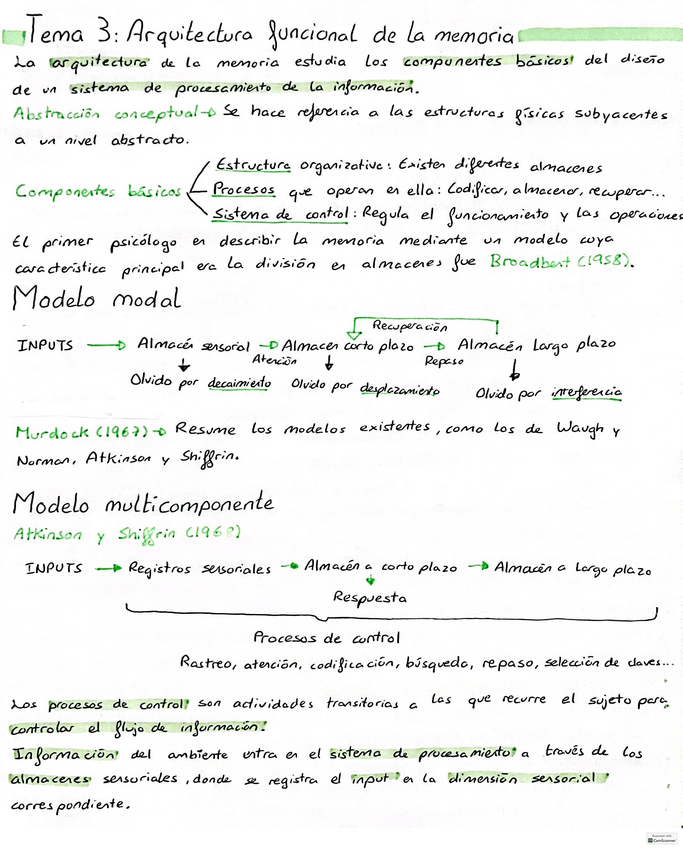 Tema 3: Arquitectura funcional de la memoria
La arquitectura de la memoria estudia los componentes básicos del diseño
de un sistema de procesamiento de la información.
Abstracción conceptual → Se hace referencia a las estructuras físicas subyacentes
a un nivel abstracto.
Estructura organizativa: Existen diferentes almacenes
Componentes básicos Procesos que operan en ella: Codificar, almacenar, recuperar...
Sistema de control: Regula el funcionamiento y las operaciones
El primer psicólogo en describir la memoria mediante un modelo cuya
característica principal era la división en almacenes fue Broadbent (1958).
Modelo modal
Recuperación
INPUTS → Almacén sensorial → Almacen corto plazo → Almacén Largo plazo
Atención Repaso
Olvido por decaimiento Olvido por desplazamiento Olvido por interferencia
Murdock (1967) → Resume los modelos existentes, como los de Waugh y
Norman, Atkinson y Shiffrin.
Modelo multicomponente
Atkinson y Shiffrin (1968)
INPUTS → Registros sensoriales → Almacén a corto plazo → Almacén a Largo plazo
Respuesta
Procesos de control
Rastreo, atención, codificación, búsqueda, repaso, selección de claves...
Los procesos de control son actividades transitorias a las que recurre el sujeto para
controlar el flujo de información.
Información del ambiente entra en el sistema de procesamiento a través de los
almacenes sensoriales, donde se registra el input en la dimensión sensorial
correspondiente.
Scanned with
CamScanner